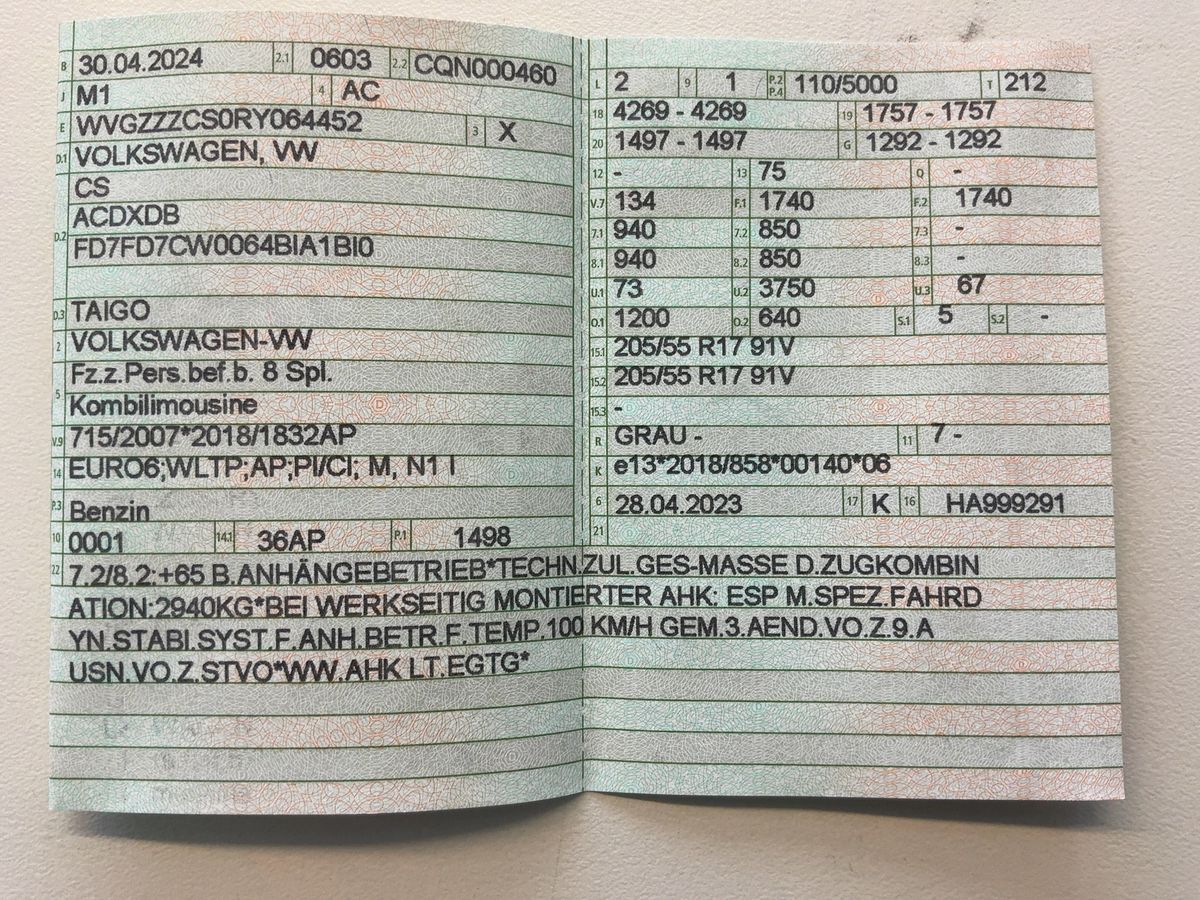 B 30.04.2024 2.1 0603 2.2 CQN000460
J M1 4 AC
E WVGZZZCS0RY064452 3 X
D.1 VOLKSWAGEN, VW
CS
D.2 ACDXDB
FD7FD7CW0064BIA1BI0
D.3 TAIGO
2 VOLKSWAGEN-VW
5 Fz.z.Pers.bef.b. 8 Spl.
Kombilimousine
V.9 715/2007*2018/1832AP
14 EURO6;WLTP;AP;PI/CI; M, N1 I
P.3 Benzin
10 0001 14.1 36AP P.1 1498
L 2 9 1 P.2 P.4 110/5000 T 212
18 4269 - 4269 19 1757 - 1757
20 1497 - 1497 G 1292 - 1292
12 - 13 75 Q -
V.7 134 F.1 1740 F.2 1740
7.1 940 7.2 850 7.3 -
8.1 940 8.2 850 8.3 -
U.1 73 U.2 3750 U.3 67
O.1 1200 O.2 640 S.1 5 S.2 -
15.1 205/55 R17 91V
15.2 205/55 R17 91V
15.3 -
R GRAU - 11 7 -
K e13*2018/858*00140*06
6 28.04.2023 17 K 16 HA999291
21
22 7.2/8.2:+65 B.ANHÄNGEBETRIEB*TECHN.ZUL.GES-MASSE D.ZUGKOMBIN
ATION:2940KG*BEI WERKSEITIG MONTIERTER AHK: ESP M.SPEZ.FAHRD
YN.STABI.SYST.F.ANH.BETR.F.TEMP.100 KM/H GEM.3.AEND.VO.Z.9.A
USN.VO.Z.STVO*WW.AHK LT.EGTG*